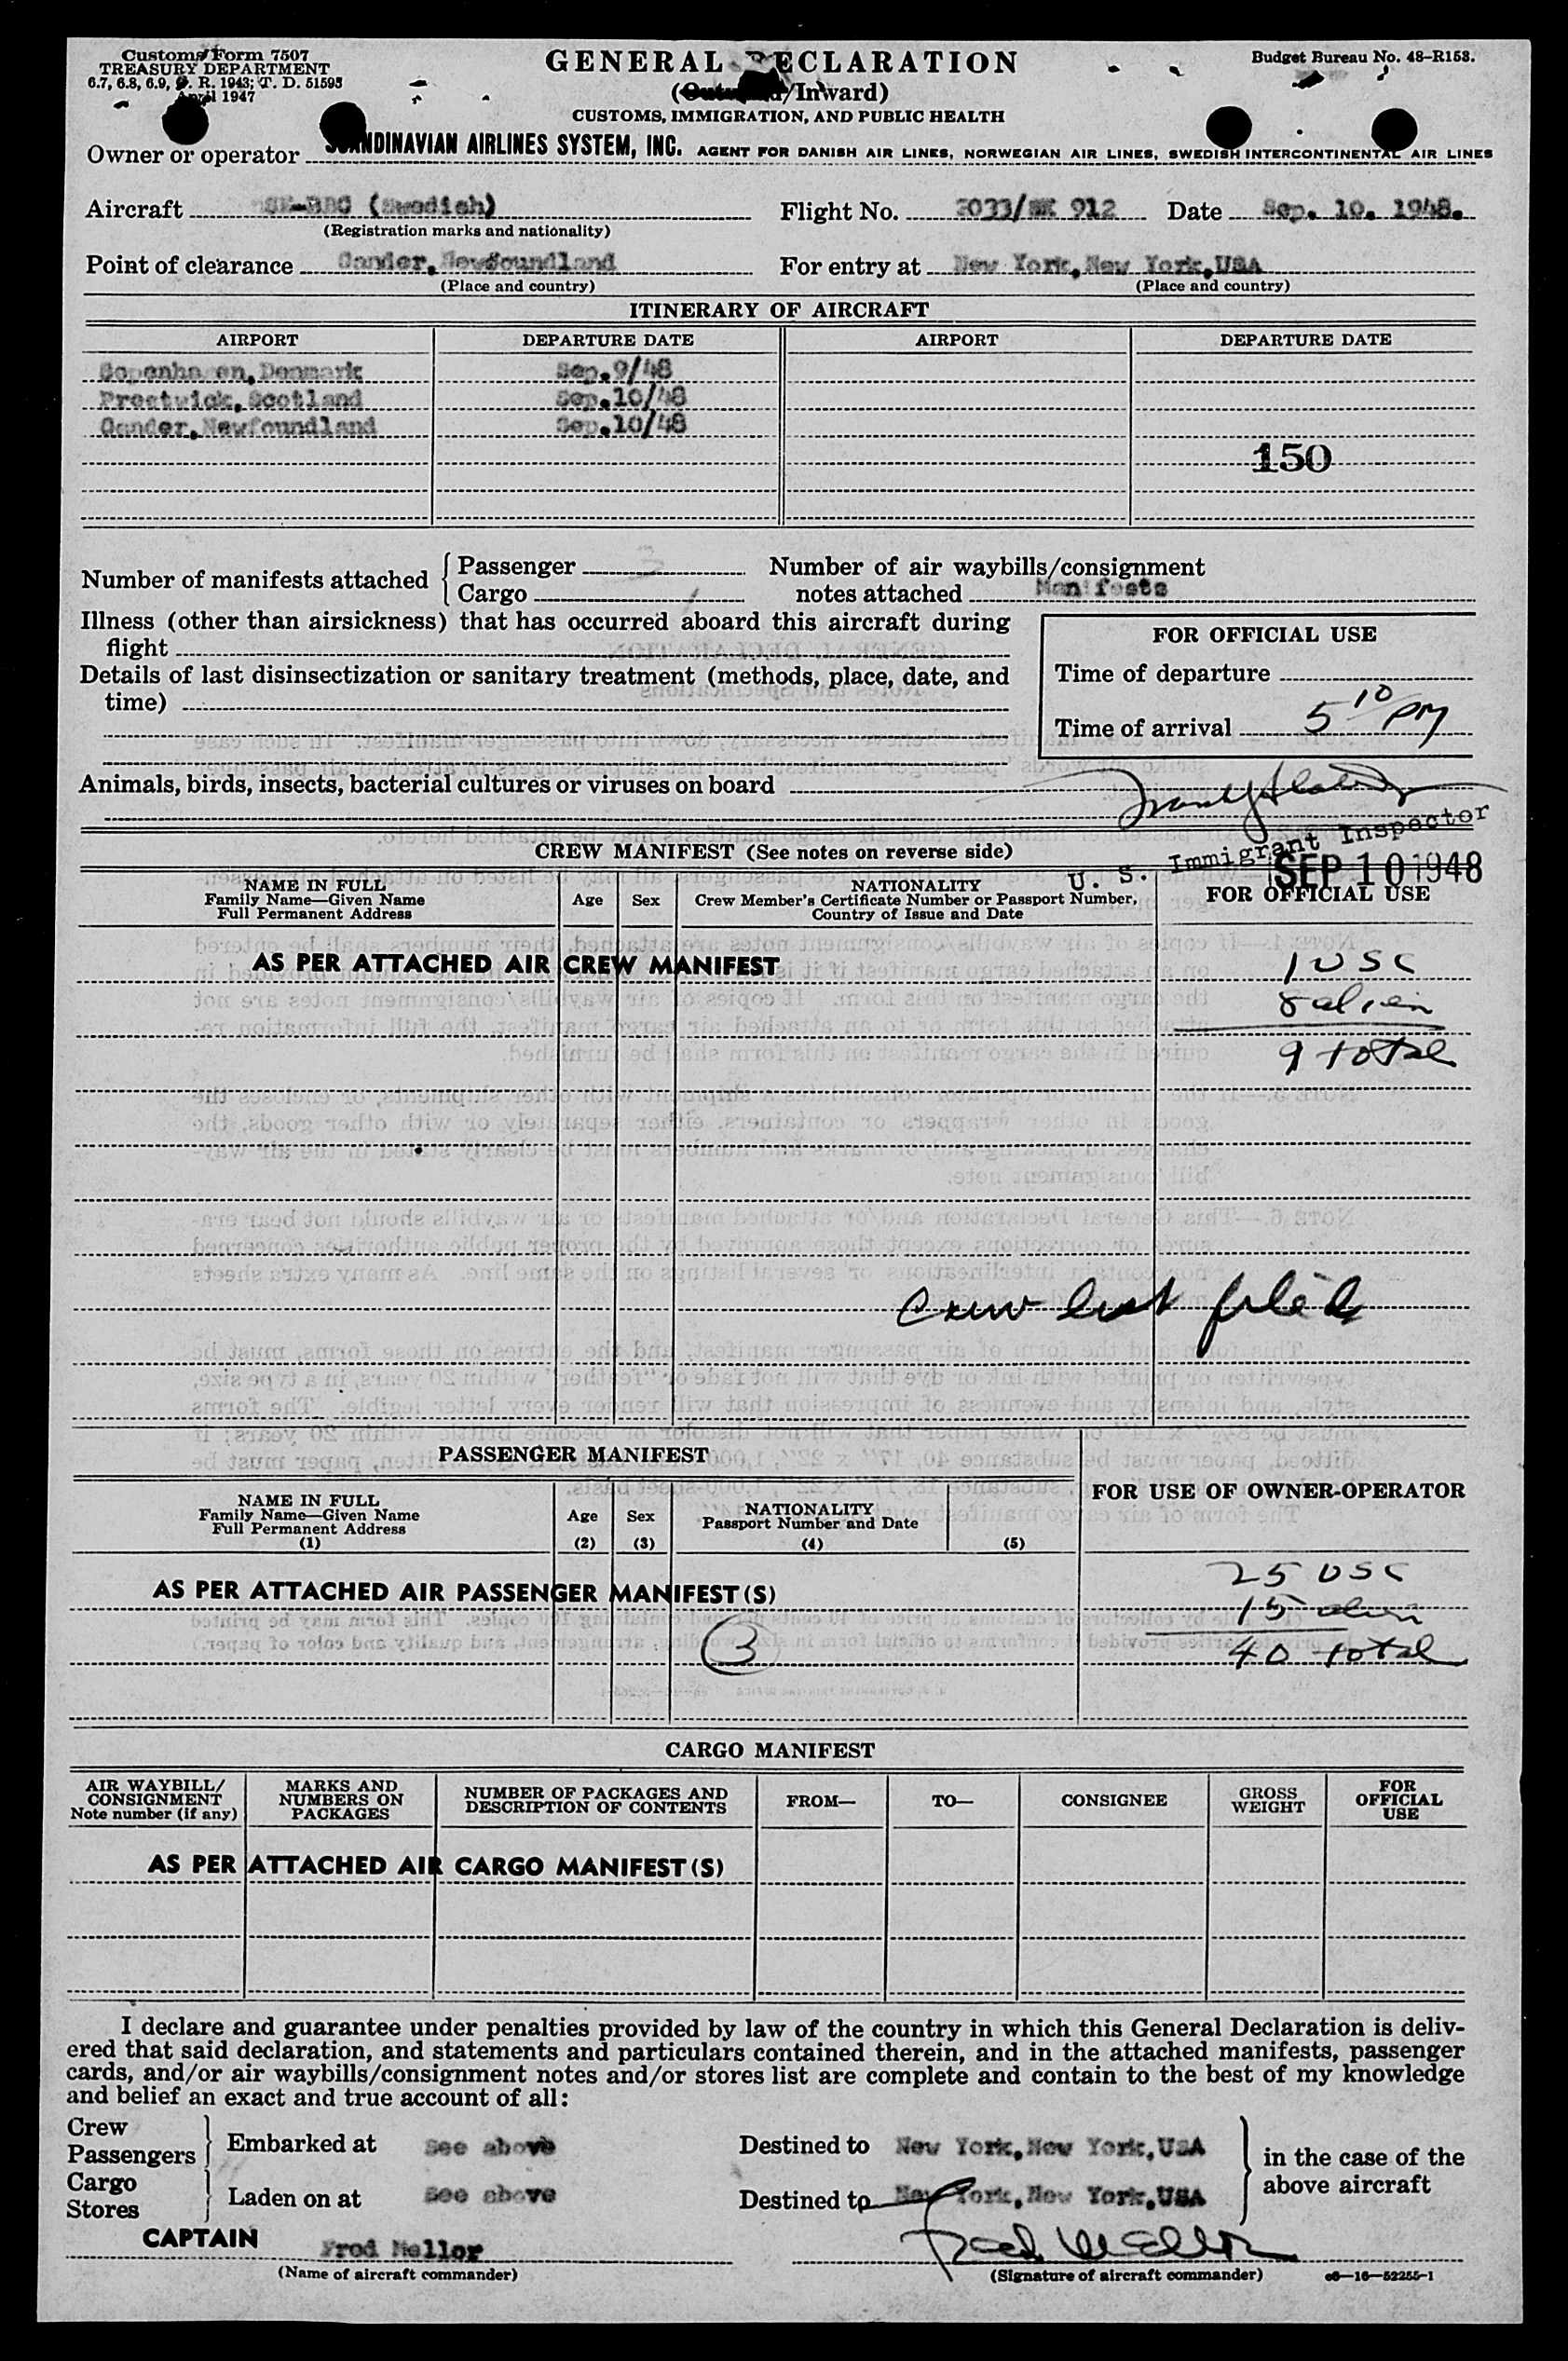 Customs Form 7507
TREASURY DEPARTMENT
6.7, 6.8, 6.9, C. R. 1943; T. D. 51595
April 1947
GENERAL DECLARATION
(Outward/Inward)
CUSTOMS, IMMIGRATION, AND PUBLIC HEALTH
Budget Bureau No. 48–R153.
Owner or operator SCANDINAVIAN AIRLINES SYSTEM, INC. AGENT FOR DANISH AIR LINES, NORWEGIAN AIR LINES, SWEDISH INTERCONTINENTAL AIR LINES
Aircraft (Swedish) Flight No. 2033/SK 912 Date Sep. 10. 1948.
(Registration marks and nationality)
Point of clearance Gander, Newfoundland For entry at New York, New York, USA
(Place and country) (Place and country)
ITINERARY OF AIRCRAFT
AIRPORT DEPARTURE DATE AIRPORT DEPARTURE DATE
Copenhagen, Denmark Sep.9/48
Prestwick, Scotland Sep.10/48
Gander, Newfoundland Sep.10/48
150
Number of manifests attached { Passenger 3 Number of air waybills/consignment
Cargo 1 notes attached Manifests
Illness (other than airsickness) that has occurred aboard this aircraft during
flight
FOR OFFICIAL USE
Details of last disinsectization or sanitary treatment (methods, place, date, and
time)
Time of departure
Time of arrival 5 10 PM
Animals, birds, insects, bacterial cultures or viruses on board
U. S. Immigrant Inspector
SEP 10 1948
CREW MANIFEST (See notes on reverse side)
NAME IN FULL
Family Name—Given Name
Full Permanent Address
Age Sex
NATIONALITY
Crew Member's Certificate Number or Passport Number,
Country of Issue and Date
FOR OFFICIAL USE
AS PER ATTACHED AIR CREW MANIFEST 1 USC
8 alien
9 total
Crew list filed
PASSENGER MANIFEST
FOR USE OF OWNER-OPERATOR
NAME IN FULL
Family Name—Given Name
Full Permanent Address
(1)
Age
(2)
Sex
(3)
NATIONALITY
Passport Number and Date
(4) (5)
AS PER ATTACHED AIR PASSENGER MANIFEST(S) 25 USC
15 alien
3 40 total
CARGO MANIFEST
AIR WAYBILL/
CONSIGNMENT
Note number (if any)
MARKS AND
NUMBERS ON
PACKAGES
NUMBER OF PACKAGES AND
DESCRIPTION OF CONTENTS
FROM— TO— CONSIGNEE
GROSS
WEIGHT
FOR
OFFICIAL
USE
AS PER ATTACHED AIR CARGO MANIFEST(S)
I declare and guarantee under penalties provided by law of the country in which this General Declaration is deliv-
ered that said declaration, and statements and particulars contained therein, and in the attached manifests, passenger
cards, and/or air waybills/consignment notes and/or stores list are complete and contain to the best of my knowledge
and belief an exact and true account of all:
Crew
Passengers } Embarked at See above Destined to New York, New York, USA
in the case of the
above aircraft
Cargo
Stores } Laden on at See above Destined to New York, New York, USA
CAPTAIN Fred Mellor Fred Mellor
(Name of aircraft commander) (Signature of aircraft commander) c6—16—52255-1